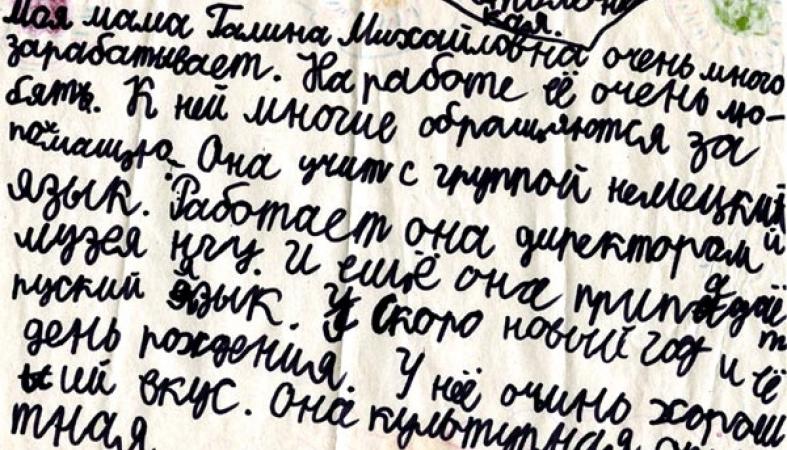 кая.
Моя мама Галина Михайловна очень много
зарабатывает. На работе её очень лю-
бять. К ней многие обращяются за
помащю. Она учит с группой немецкий
язык. Работает она директором
музея нгу. И ещё она приподаёт
руский язык. Скоро новый год и её
день рождения. У неё очинь хорош
ий вкус. Она культурная
тная